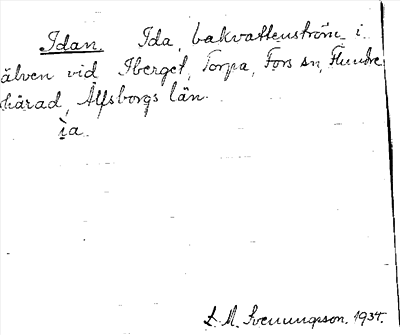 Idan. Ida, bakvattenström i
älven vid Iberget, Torpa, Fors sn, Flundre
härad, Älfsborgs län.
ìa.
L. M. Svenungsson. 1934.